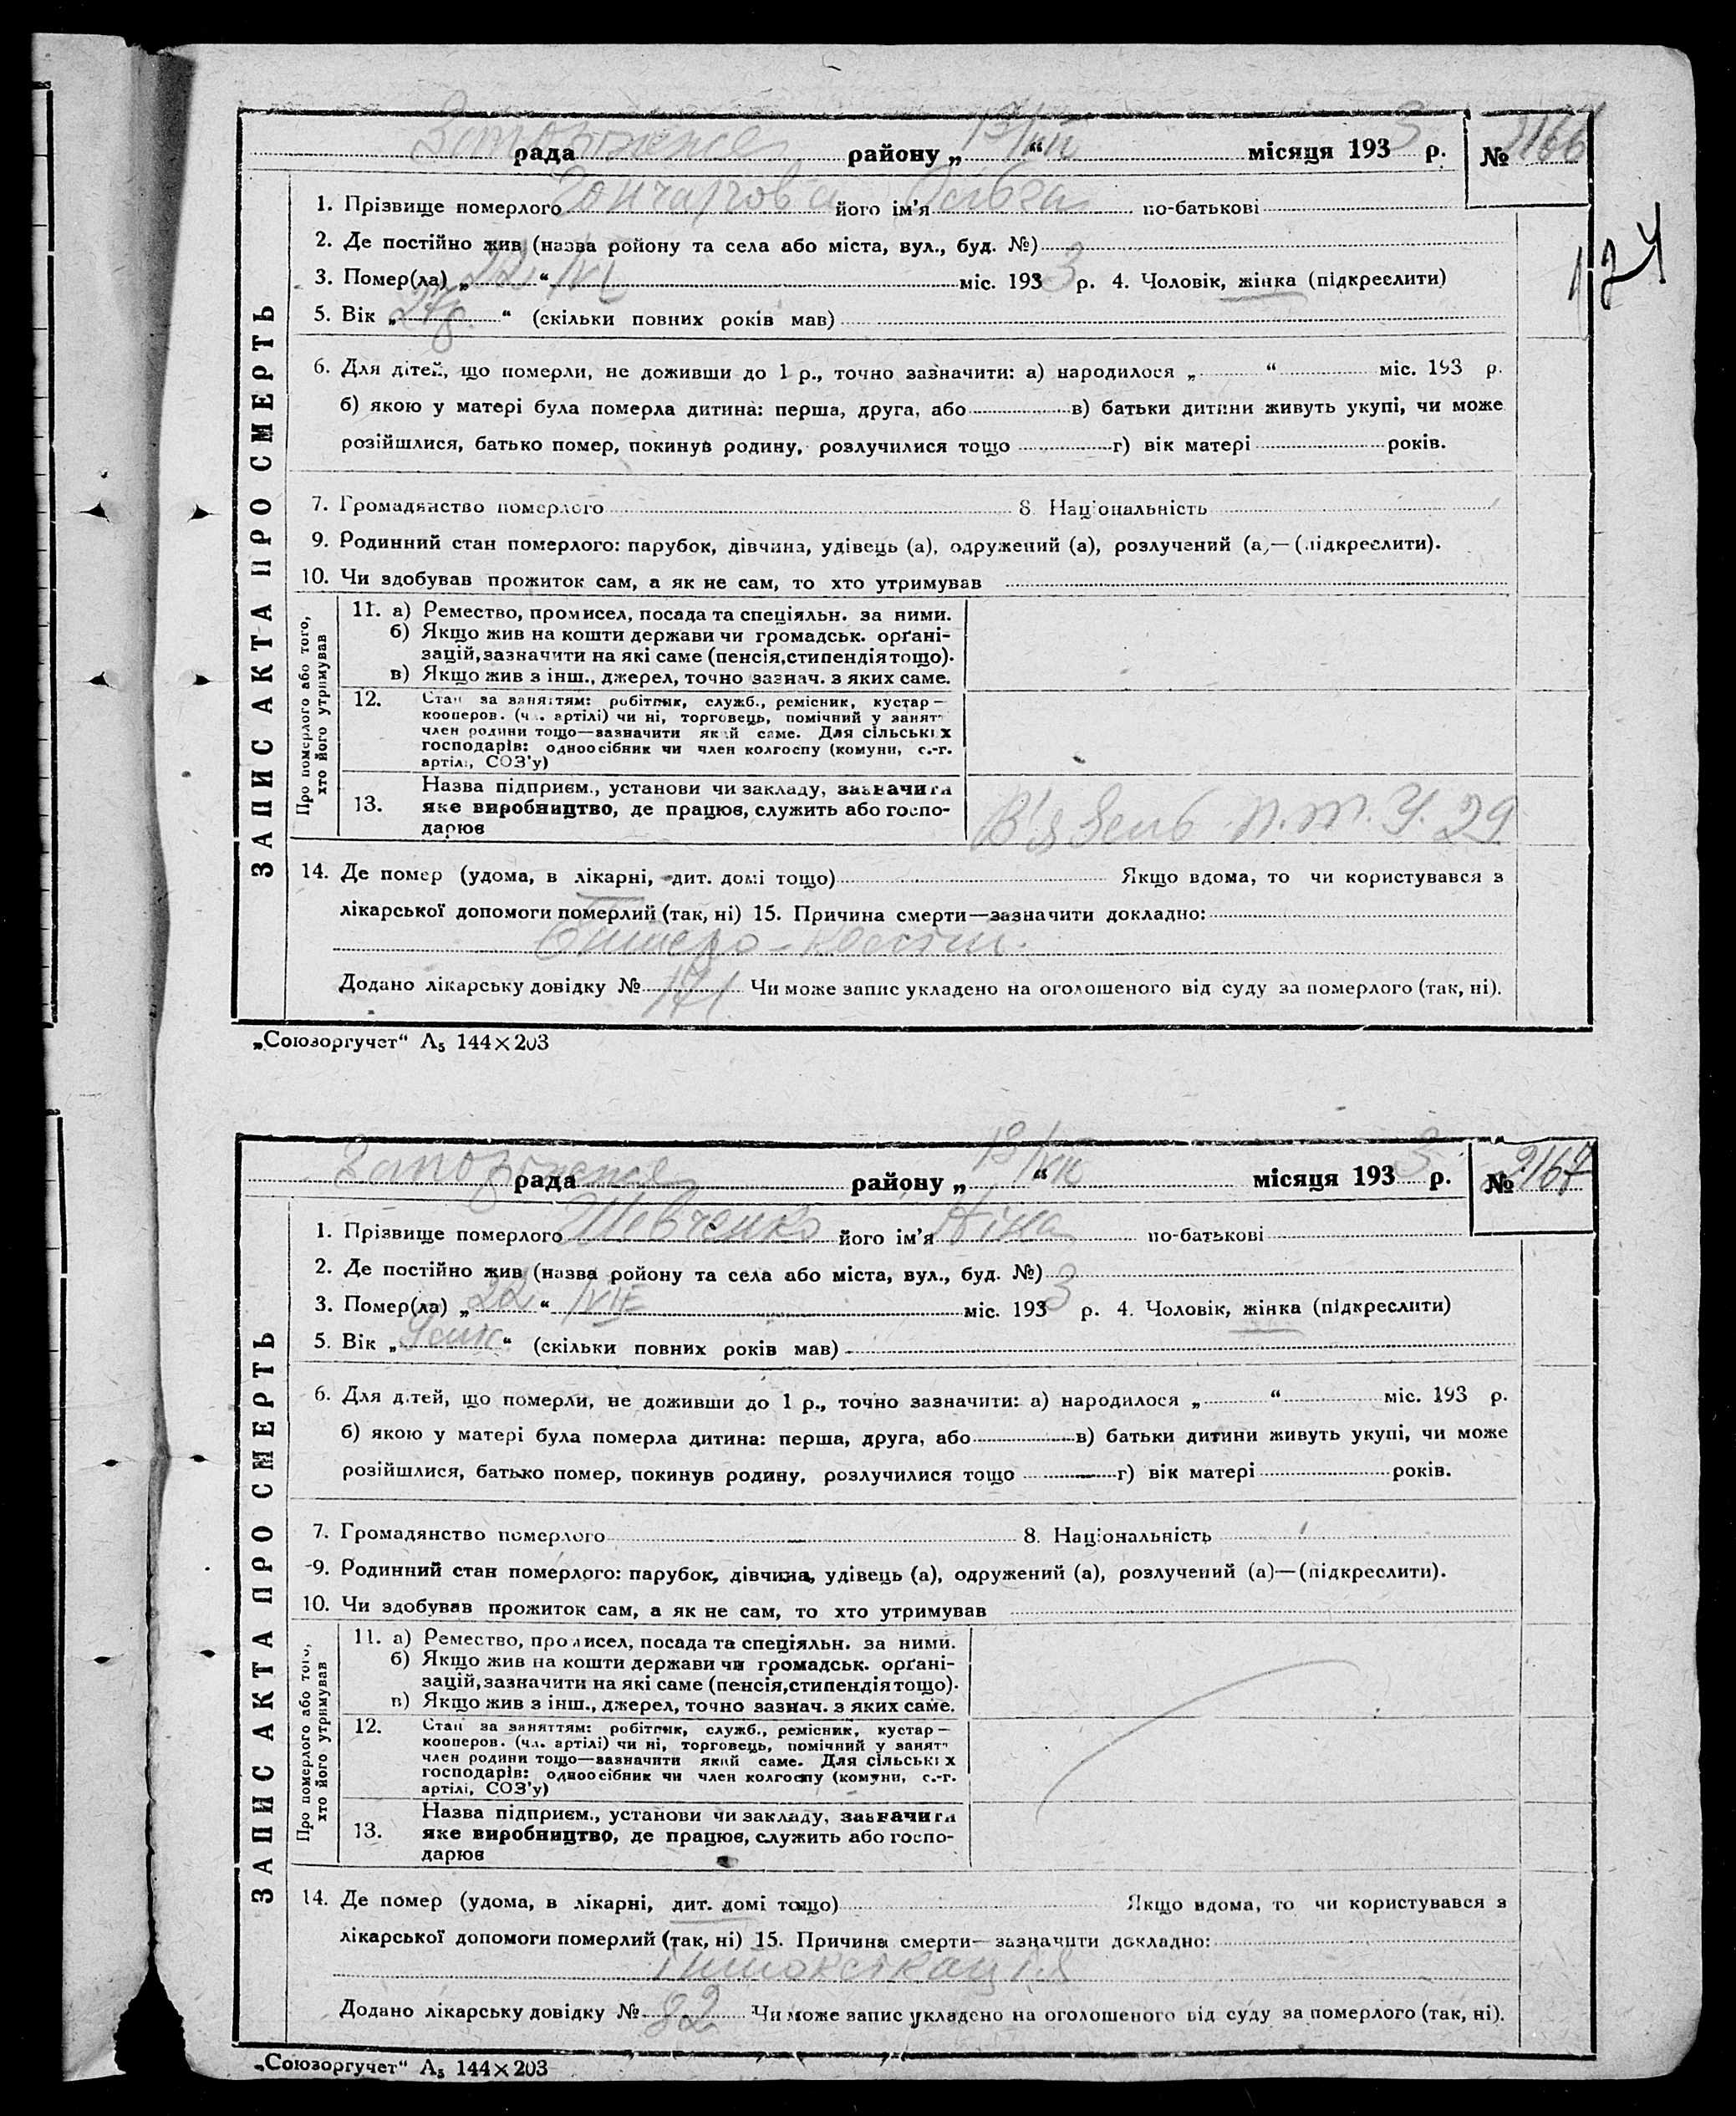 рада района „ 13/VII “ місяця 1933 р. № 2166
1. Прізвище померлого Гончарова його ім'я Ольга по-батькові
2. Де постійно жив (назва ройону та села або міста, вул., буд. №)
3. Помер(ла) „ 22 “ /VI міс. 1933 р. 4. Чоловік, жінка (підкреслити)
5. Вік „ “ (скільки повних років мав)
6. Для дітей, що померли, не доживши до 1 р., точно зазначити: а) народилося „ “ міс. 193 р.
б) якою у матері була померла дитина: перша, друга, або в) батьки дитини живуть укупі, чи може
розійшлися, батько помер, покинув родину, розлучилися тощо г) вік матері років.
7. Громадянство померлого 8. Національність
9. Родинний стан померлого: парубок, дівчина, удівець (а), одружений (а), розлучений (а)—(підкреслити).
10. Чи здобував прожиток сам, а як не сам, то хто утримував
Про померлого або того, хто його утримував
11. а) Ремество, промисел, посада та спеціяльн. за ними.
б) Якщо жив на кошти держави чи громадськ. орґані-
зацій, зазначити на які саме (пенсія, стипендія тощо).
в) Якщо жив з інш., джерел, точно зазнач. з яких саме.
12. Стан за заняттям: робітник, служб., ремісник, кустар—
кооперов. (чл. артілі) чи ні, торговець, помічний у занят"
член родини тощо—зазначити який саме. Для сільських
господарів: одноосібник чи член колгоспу (комуни, с.-г.
артілі, СОЗ'у)
13. Назва підприєм., установи чи закладу, зазначити
яке виробництво, де працює, служить або госпо-
дарює
В'язень п.т.у. 29
14. Де помер (удома, в лікарні, дит. домі тощо) Якщо вдома, то чи користувався з
лікарської допомоги померлий (так, ні) 15. Причина смерти—зазначити докладно:
Ентеро-коліт.
Додано лікарську довідку № 171 Чи може запис укладено на оголошеного від суду за померлого (так, ні).
ЗАПИС АКТА ПРО СМЕРТЬ
„Союзоргучет“ А₅ 144×203
174
рада району „ 13/VII “ місяця 1933 р. № 2167
1. Прізвище померлого Шевченко його ім'я Ніна по-батькові
2. Де постійно жив (назва ройону та села або міста, вул., буд. №)
3. Помер(ла) „ 22 “ /VII міс. 1933 р. 4. Чоловік, жінка (підкреслити)
5. Вік „ “ (скільки повних років мав)
6. Для дітей, що померли, не доживши до 1 р., точно зазначити: а) народилося „ “ міс. 193 р.
б) якою у матері була померла дитина: перша, друга, або в) батьки дитини живуть укупі, чи може
розійшлися, батько помер, покинув родину, розлучилися тощо г) вік матері років.
7. Громадянство померлого 8. Національність
9. Родинний стан померлого: парубок, дівчина, удівець (а), одружений (а), розлучений (а)—(підкреслити).
10. Чи здобував прожиток сам, а як не сам, то хто утримував
Про померлого або того, хто його утримував
11. а) Ремество, промисел, посада та спеціяльн. за ними.
б) Якщо жив на кошти держави чи громадськ. орґані-
зацій, зазначити на які саме (пенсія, стипендія тощо).
в) Якщо жив з інш., джерел, точно зазнач. з яких саме.
12. Стан за заняттям: робітник, служб., ремісник, кустар—
кооперов. (чл. артілі) чи ні, торговець, помічний у занят"
член родини тощо—зазначити який саме. Для сільських
господарів: одноосібник чи член колгоспу (комуни, с.-г.
артілі, СОЗ'у)
13. Назва підприєм., установи чи закладу, зазначити
яке виробництво, де працює, служить або госпо-
дарює
14. Де помер (удома, в лікарні, дит. домі тощо) Якщо вдома, то чи користувався з
лікарської допомоги померлий (так, ні) 15. Причина смерти—зазначити докладно:
Інтоксікація
Додано лікарську довідку № 92 Чи може запис укладено на оголошеного від суду за померлого (так, ні).
ЗАПИС АКТА ПРО СМЕРТЬ
„Союзоргучет“ А₅ 144×203